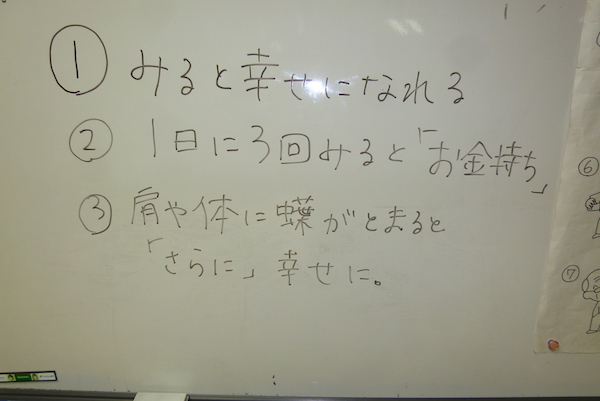 ① みると幸せになれる
② 1日に3回みると「お金持ち」
③ 肩や体に蝶がとまると
「さらに」幸せに。
⑥
⑦